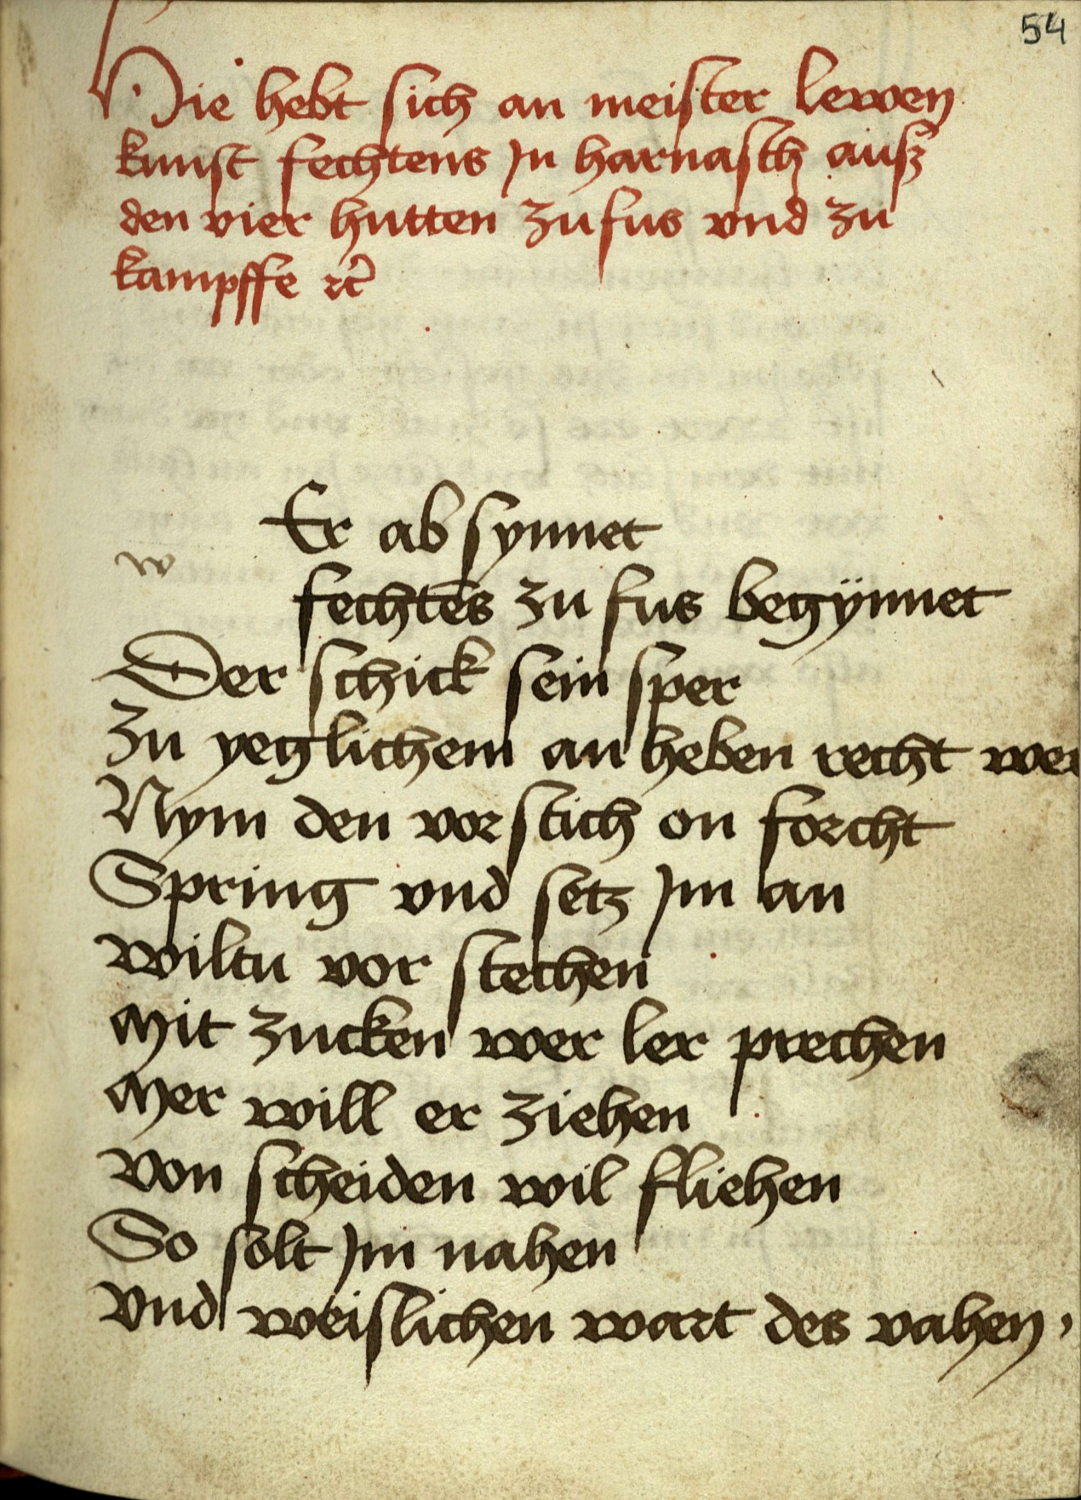 54
Hie hebt sich an meister lewen
kunst fechtens Jn harnasch auß
den vier hutten zu fus vnd zu
kampffe rc̄
Er ab synnet
w
fechtēs zu fus begÿnnet
Der schick sein sper
Zu yeglichem an heben recht wer
Nym den vor stich on forcht
Spring vnd setz Jm an
wiltu vor stechen
Mit zucken wer ler prechen
Mer will er ziehen
von scheiden wil fliehen
So solt Jm nahen
vnd weislichen wart des vahen,